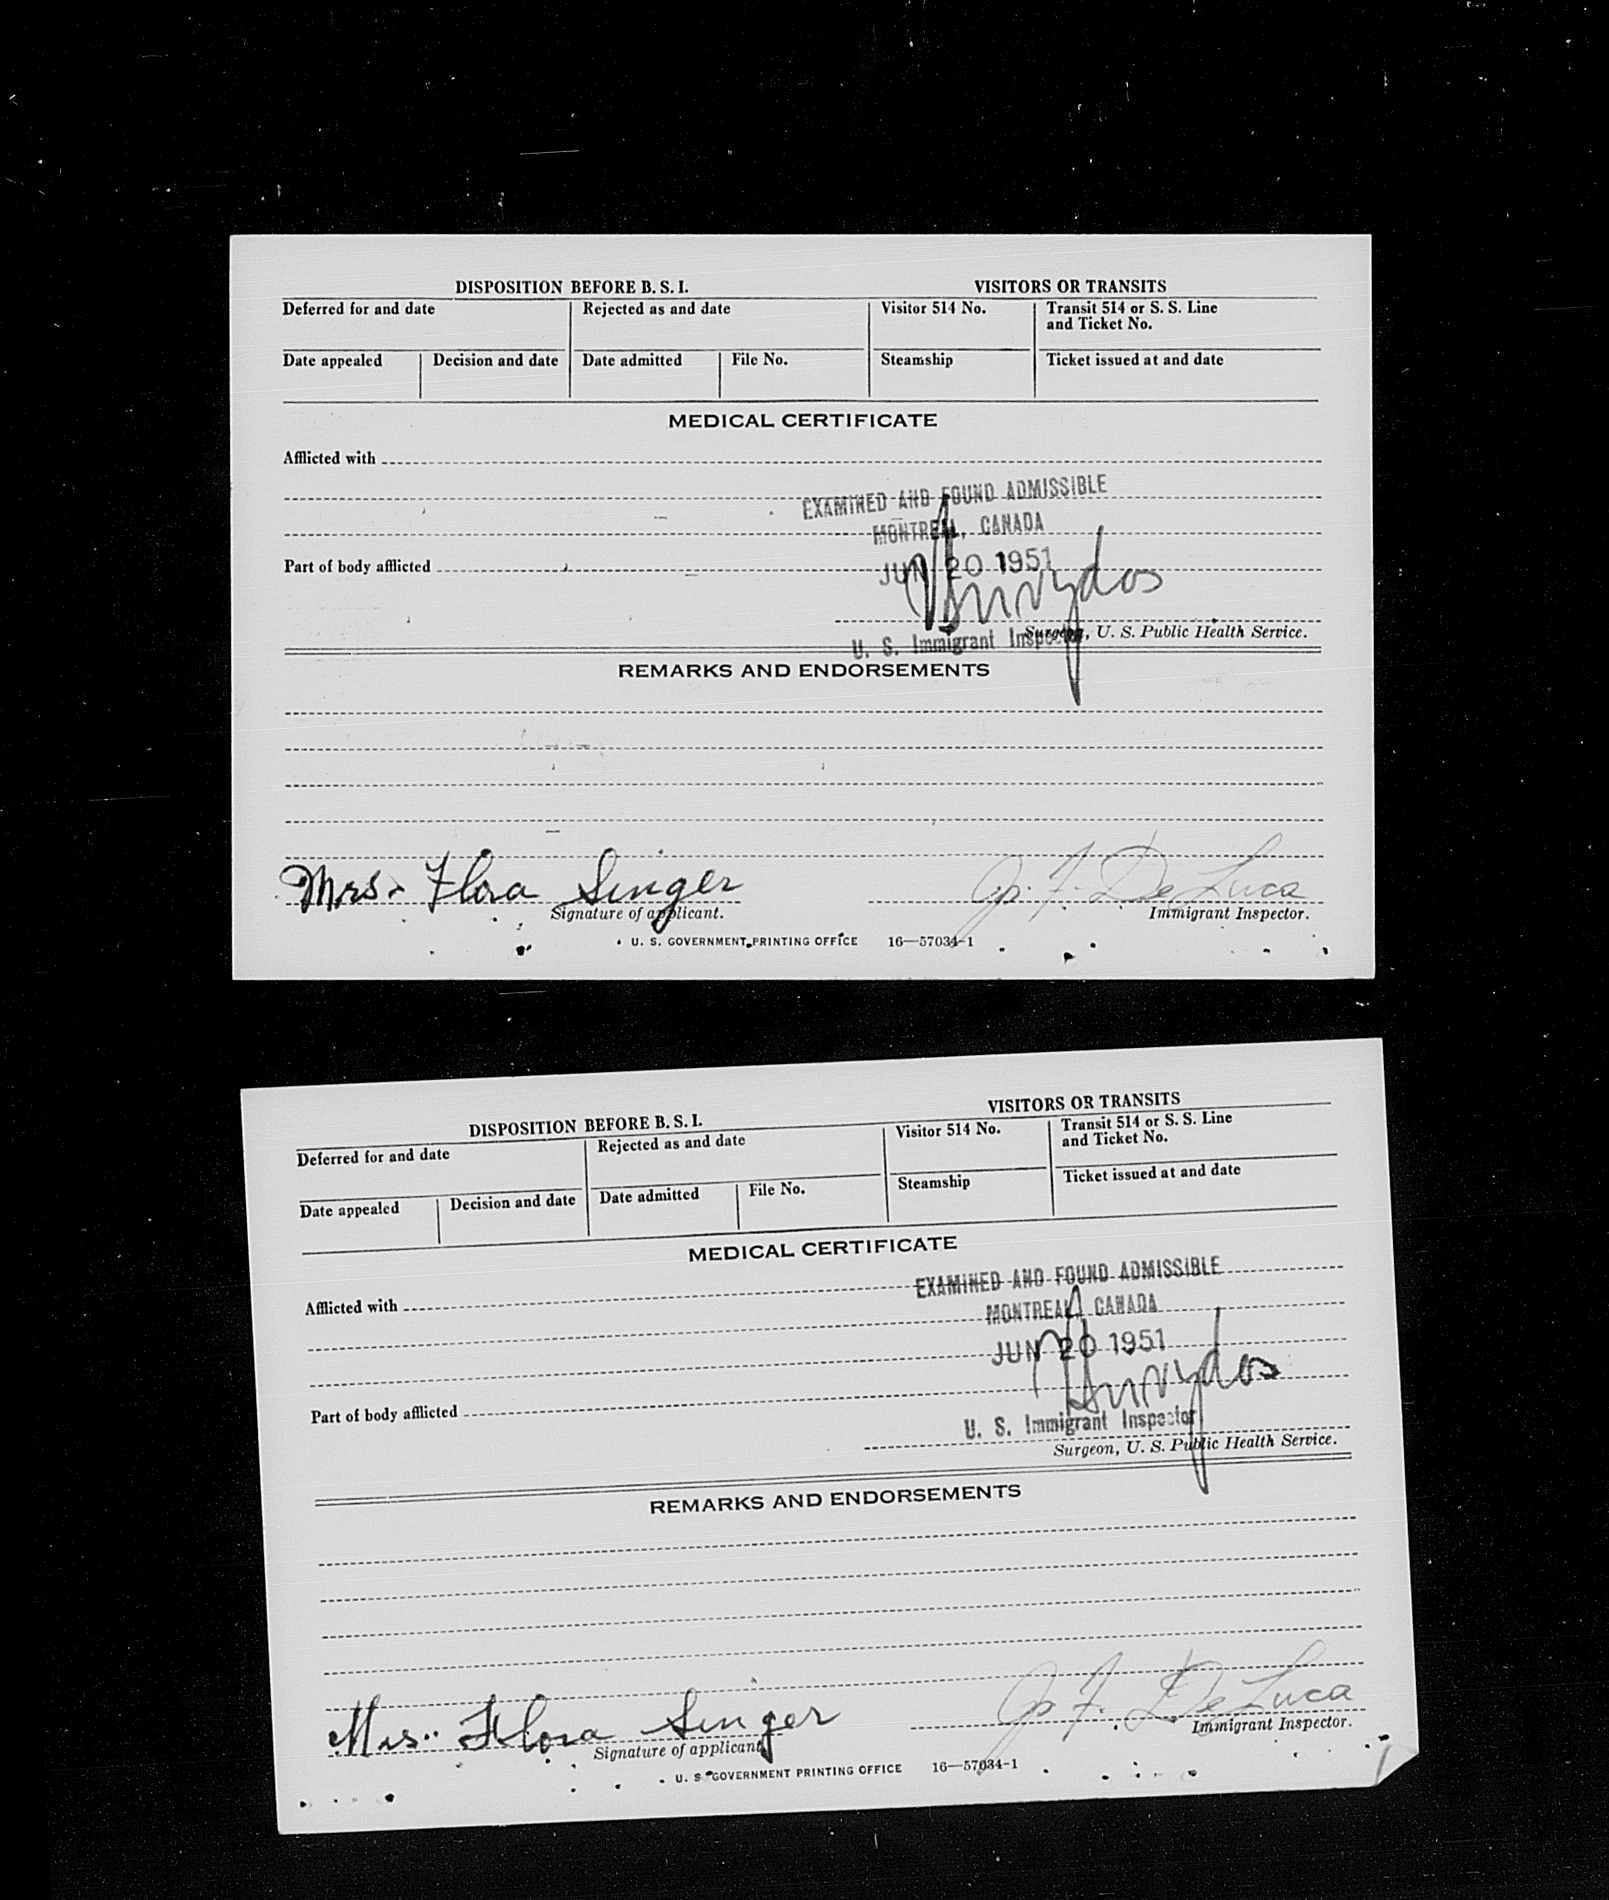 DISPOSITION BEFORE B. S. I. VISITORS OR TRANSITS
Deferred for and date Rejected as and date Visitor 514 No. Transit 514 or S. S. Line
and Ticket No.
Date appealed Decision and date Date admitted File No. Steamship Ticket issued at and date
MEDICAL CERTIFICATE
Afflicted with
EXAMINED AND FOUND ADMISSIBLE
MONTREAL, CANADA
Part of body afflicted JUN 20 1951
U. S. Immigrant Inspector Surgeon, U. S. Public Health Service.
REMARKS AND ENDORSEMENTS
Mrs. Flora Singer De Luca
Signature of applicant. Immigrant Inspector.
U. S. GOVERNMENT PRINTING OFFICE 16—57034-1
DISPOSITION BEFORE B. S. I. VISITORS OR TRANSITS
Deferred for and date Rejected as and date Visitor 514 No. Transit 514 or S. S. Line
and Ticket No.
Date appealed Decision and date Date admitted File No. Steamship Ticket issued at and date
MEDICAL CERTIFICATE
Afflicted with EXAMINED AND FOUND ADMISSIBLE
MONTREAL, CANADA
JUN 20 1951
Part of body afflicted
U. S. Immigrant Inspector
Surgeon, U. S. Public Health Service.
REMARKS AND ENDORSEMENTS
Mrs. Flora Singer De Luca
Signature of applicant. Immigrant Inspector.
U. S. GOVERNMENT PRINTING OFFICE 16—57034-1